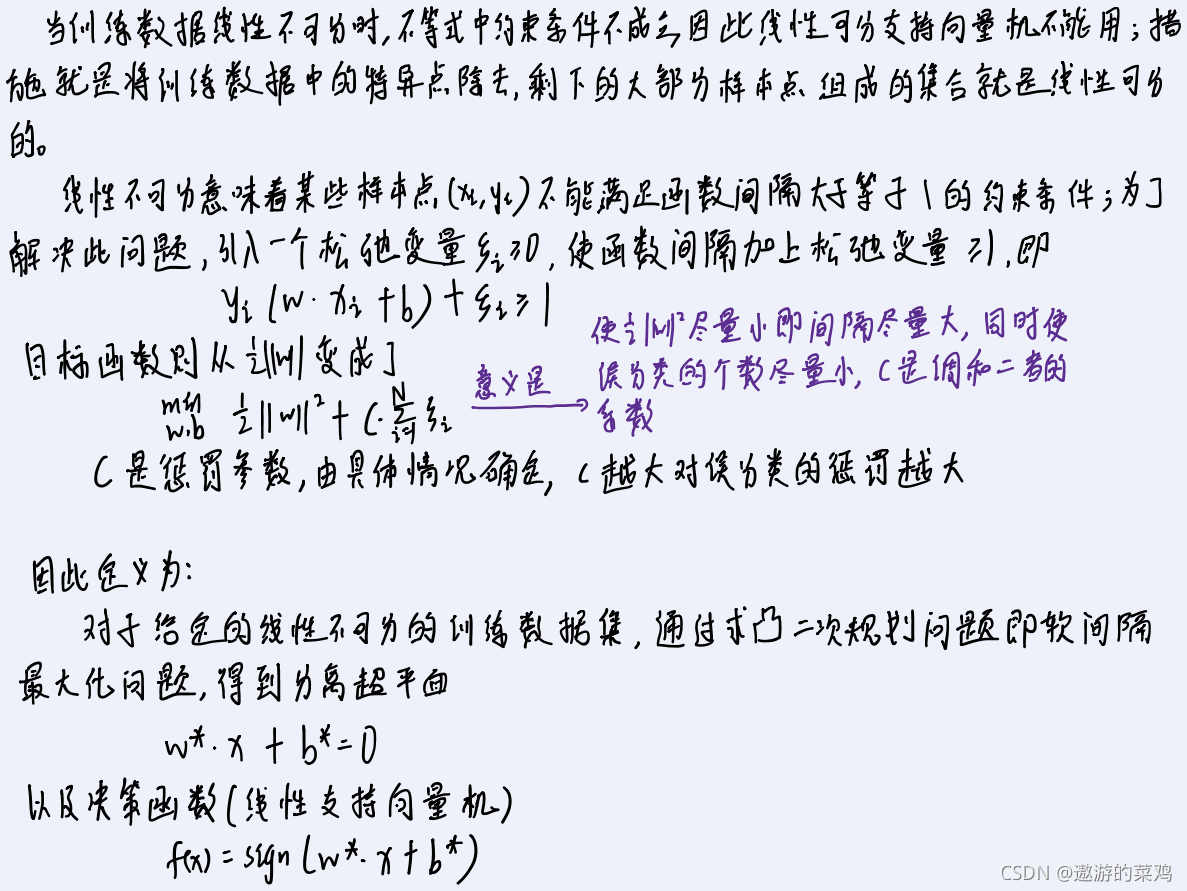 当训练数据线性不可分时,不等式中约束条件不成立,因此线性可分支持向量机不能用;措
施就是将训练数据中的特异点除去,剩下的大部分样本点组成的集合就是线性可分
的。
线性不可分意味着某些样本点(xi,yi)不能满足函数间隔大于等于1的约束条件;为了
解决此问题,引入一个松弛变量ξi≥0,使函数间隔加上松弛变量≥1,即
yi(w·xi+b)+ξi≥1
使½||w||²尽量小即间隔尽量大,同时使
目标函数则从½||w||变成了
意义是
误分类的个数尽量小,C是调和二者的
系数
min w,b ½||w||²+C·∑(i=1→N) ξi
C是惩罚参数,由具体情况确定,C越大对误分类的惩罚越大
因此定义为:
对于给定的线性不可分的训练数据集,通过求凸二次规划问题即软间隔
最大化问题,得到分离超平面
w*·x+b*=0
以及决策函数(线性支持向量机)
f(x)=sign(w*·x+b*)
CSDN @遨游的菜鸡